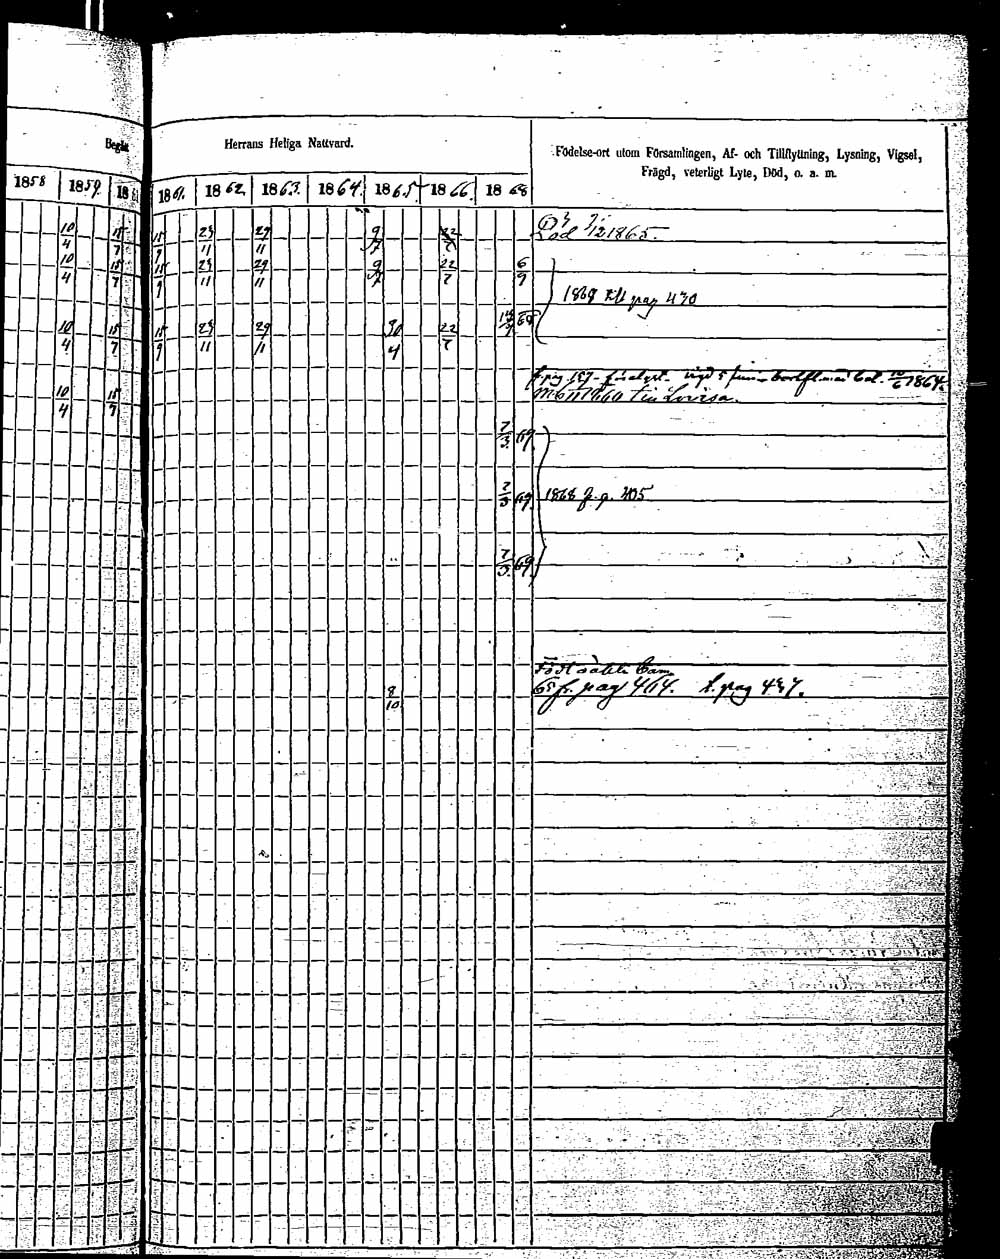 Begått
Herrans Heliga Nattvard.
Födelse-ort utom Församlingen, Af- och Tillflyttning, Lysning, Vigsel,
Frägd, veterligt Lyte, Död, o. a. m.
1858 1859 186 1861. 1862. 1863. 1864. 1865. 1866. 1868
10/4 15/7 15/9 23/11 29/11 9/7 22/7 Död 1865.
10/4 15/7 15/9 23/11 29/11 9/7 22/7 6/9
1869 till pag 430
10/4 15/7 15/9 23/11 29/11 22/7 69
f. pag 157 10/6 1864.
10/4 15/7 till Lovisa.
7/3 69
7/3 69 1868 f. p. 405
7/3 69
Född
8/10 65 fr. pag 464. t. pag 437.